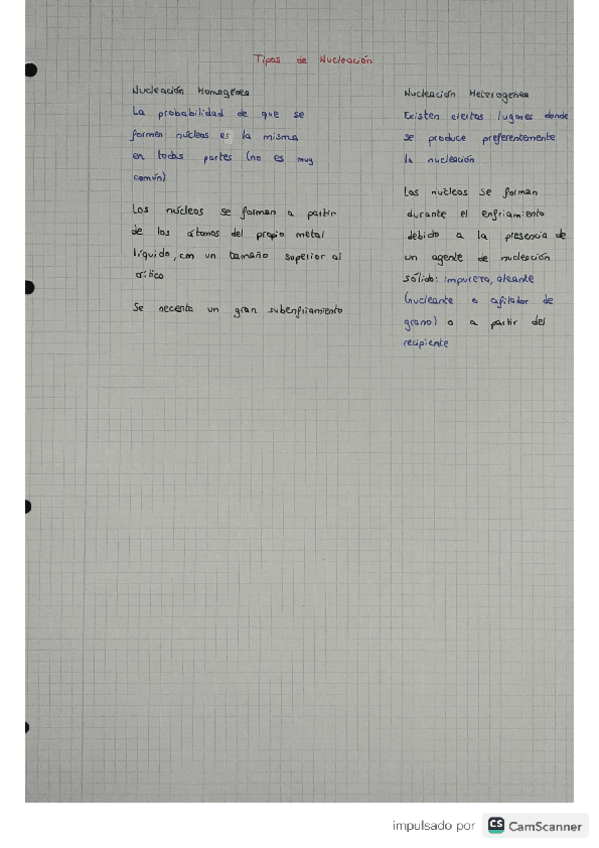 Tipos de Nucleación
Nucleación Homogénea
La probabilidad de que se
formen núcleos es la misma
en todas partes (no es muy
común)
Los núcleos se forman a partir
de los átomos del propio metal
líquido, con un tamaño superior al
crítico
Se necesita un gran subenfriamiento
Nucleación Heterogenea
Existen ciertos lugares donde
se produce preferentemente
la nucleación
Los nucleos se forman
durante el enfriamiento
debido a la presencia de
un agente de nucleación
sólido: impureza, aleante
(nucleante o afilador de
grano) o a partir del
recipiente
impulsado por CS CamScanner